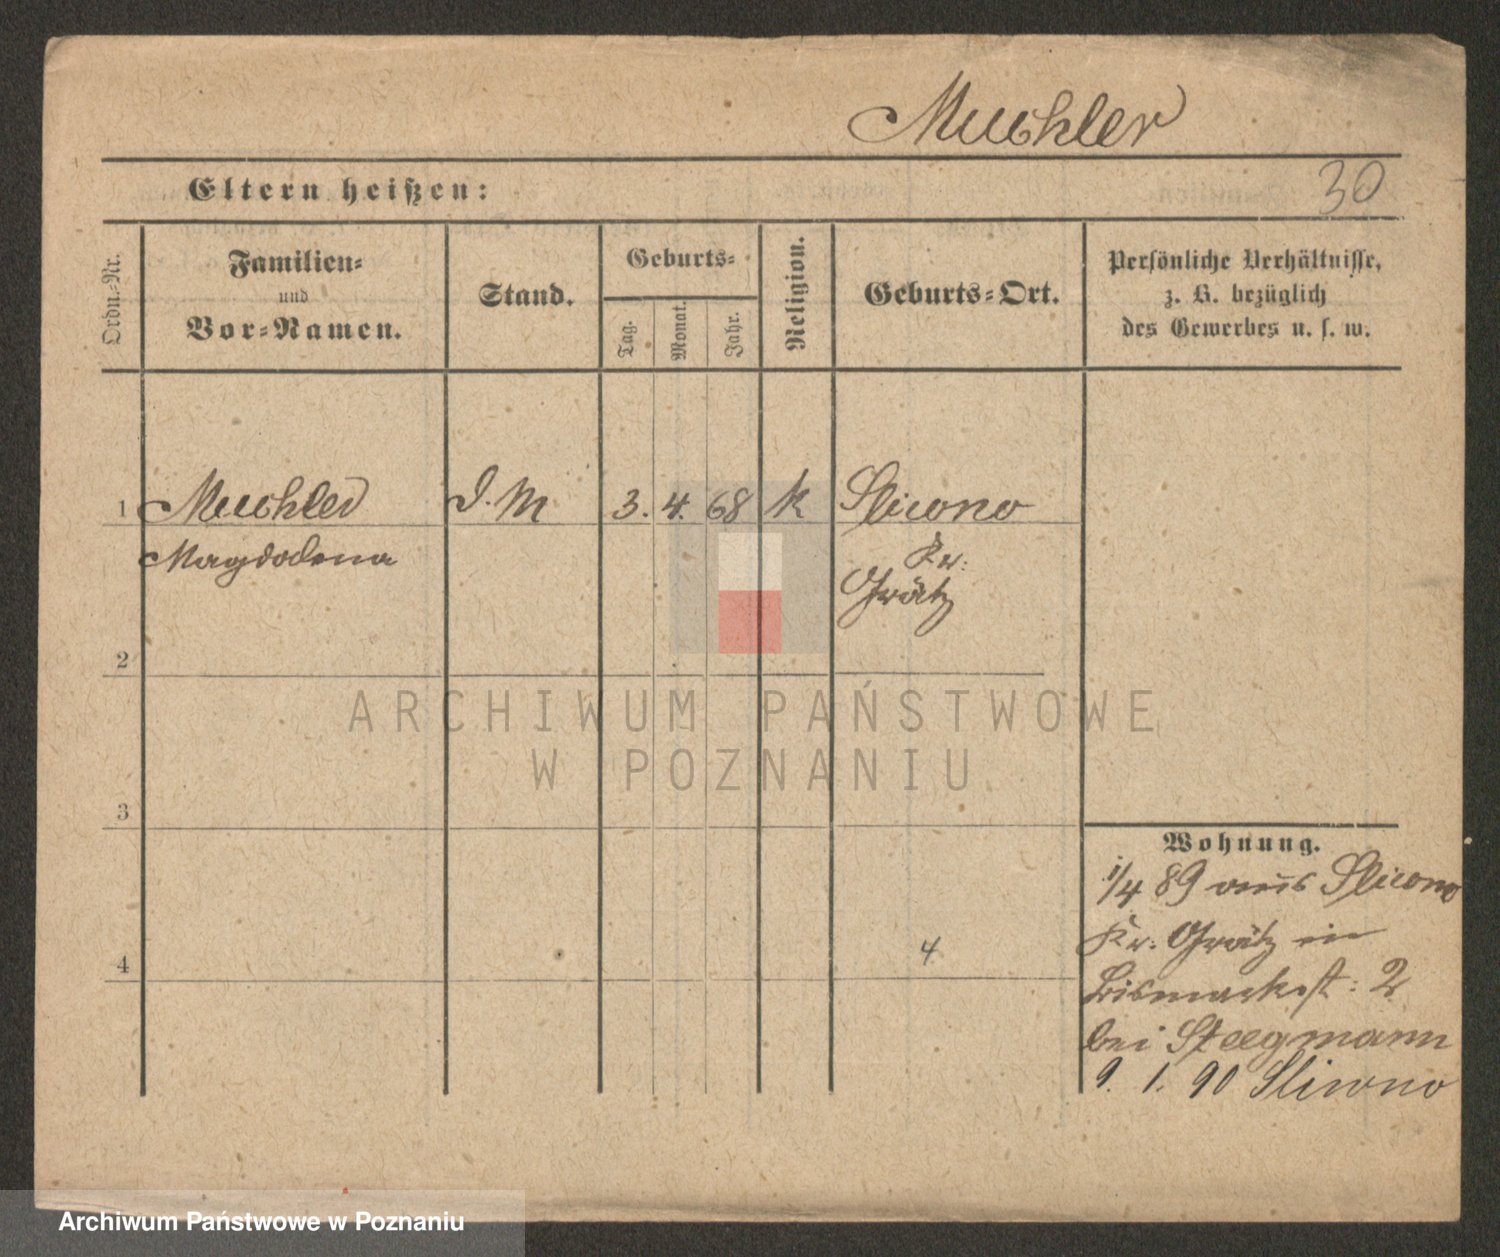 Muchler
30
Eltern heißen:
Ordn.-Nr.
Familien-
und
Vor-Namen.
Stand.
Geburts-
Tag.
Monat.
Jahr.
Religion.
Geburts-Ort.
Persönliche Verhältnisse,
z. B. bezüglich
des Gewerbes u. s. w.
1 Muchler D. M 3. 4. 68 k Sliwno
Magdalena
Kr.
Grätz
2
3
4
4
Wohnung.
1/4 89 aus Sliwno
Kr. Grätz in
Bismarckst: 2
bei Steegmann
9. 1. 90 Sliwno
ARCHIWUM PAŃSTWOWE
W POZNANIU
Archiwum Państwowe w Poznaniu